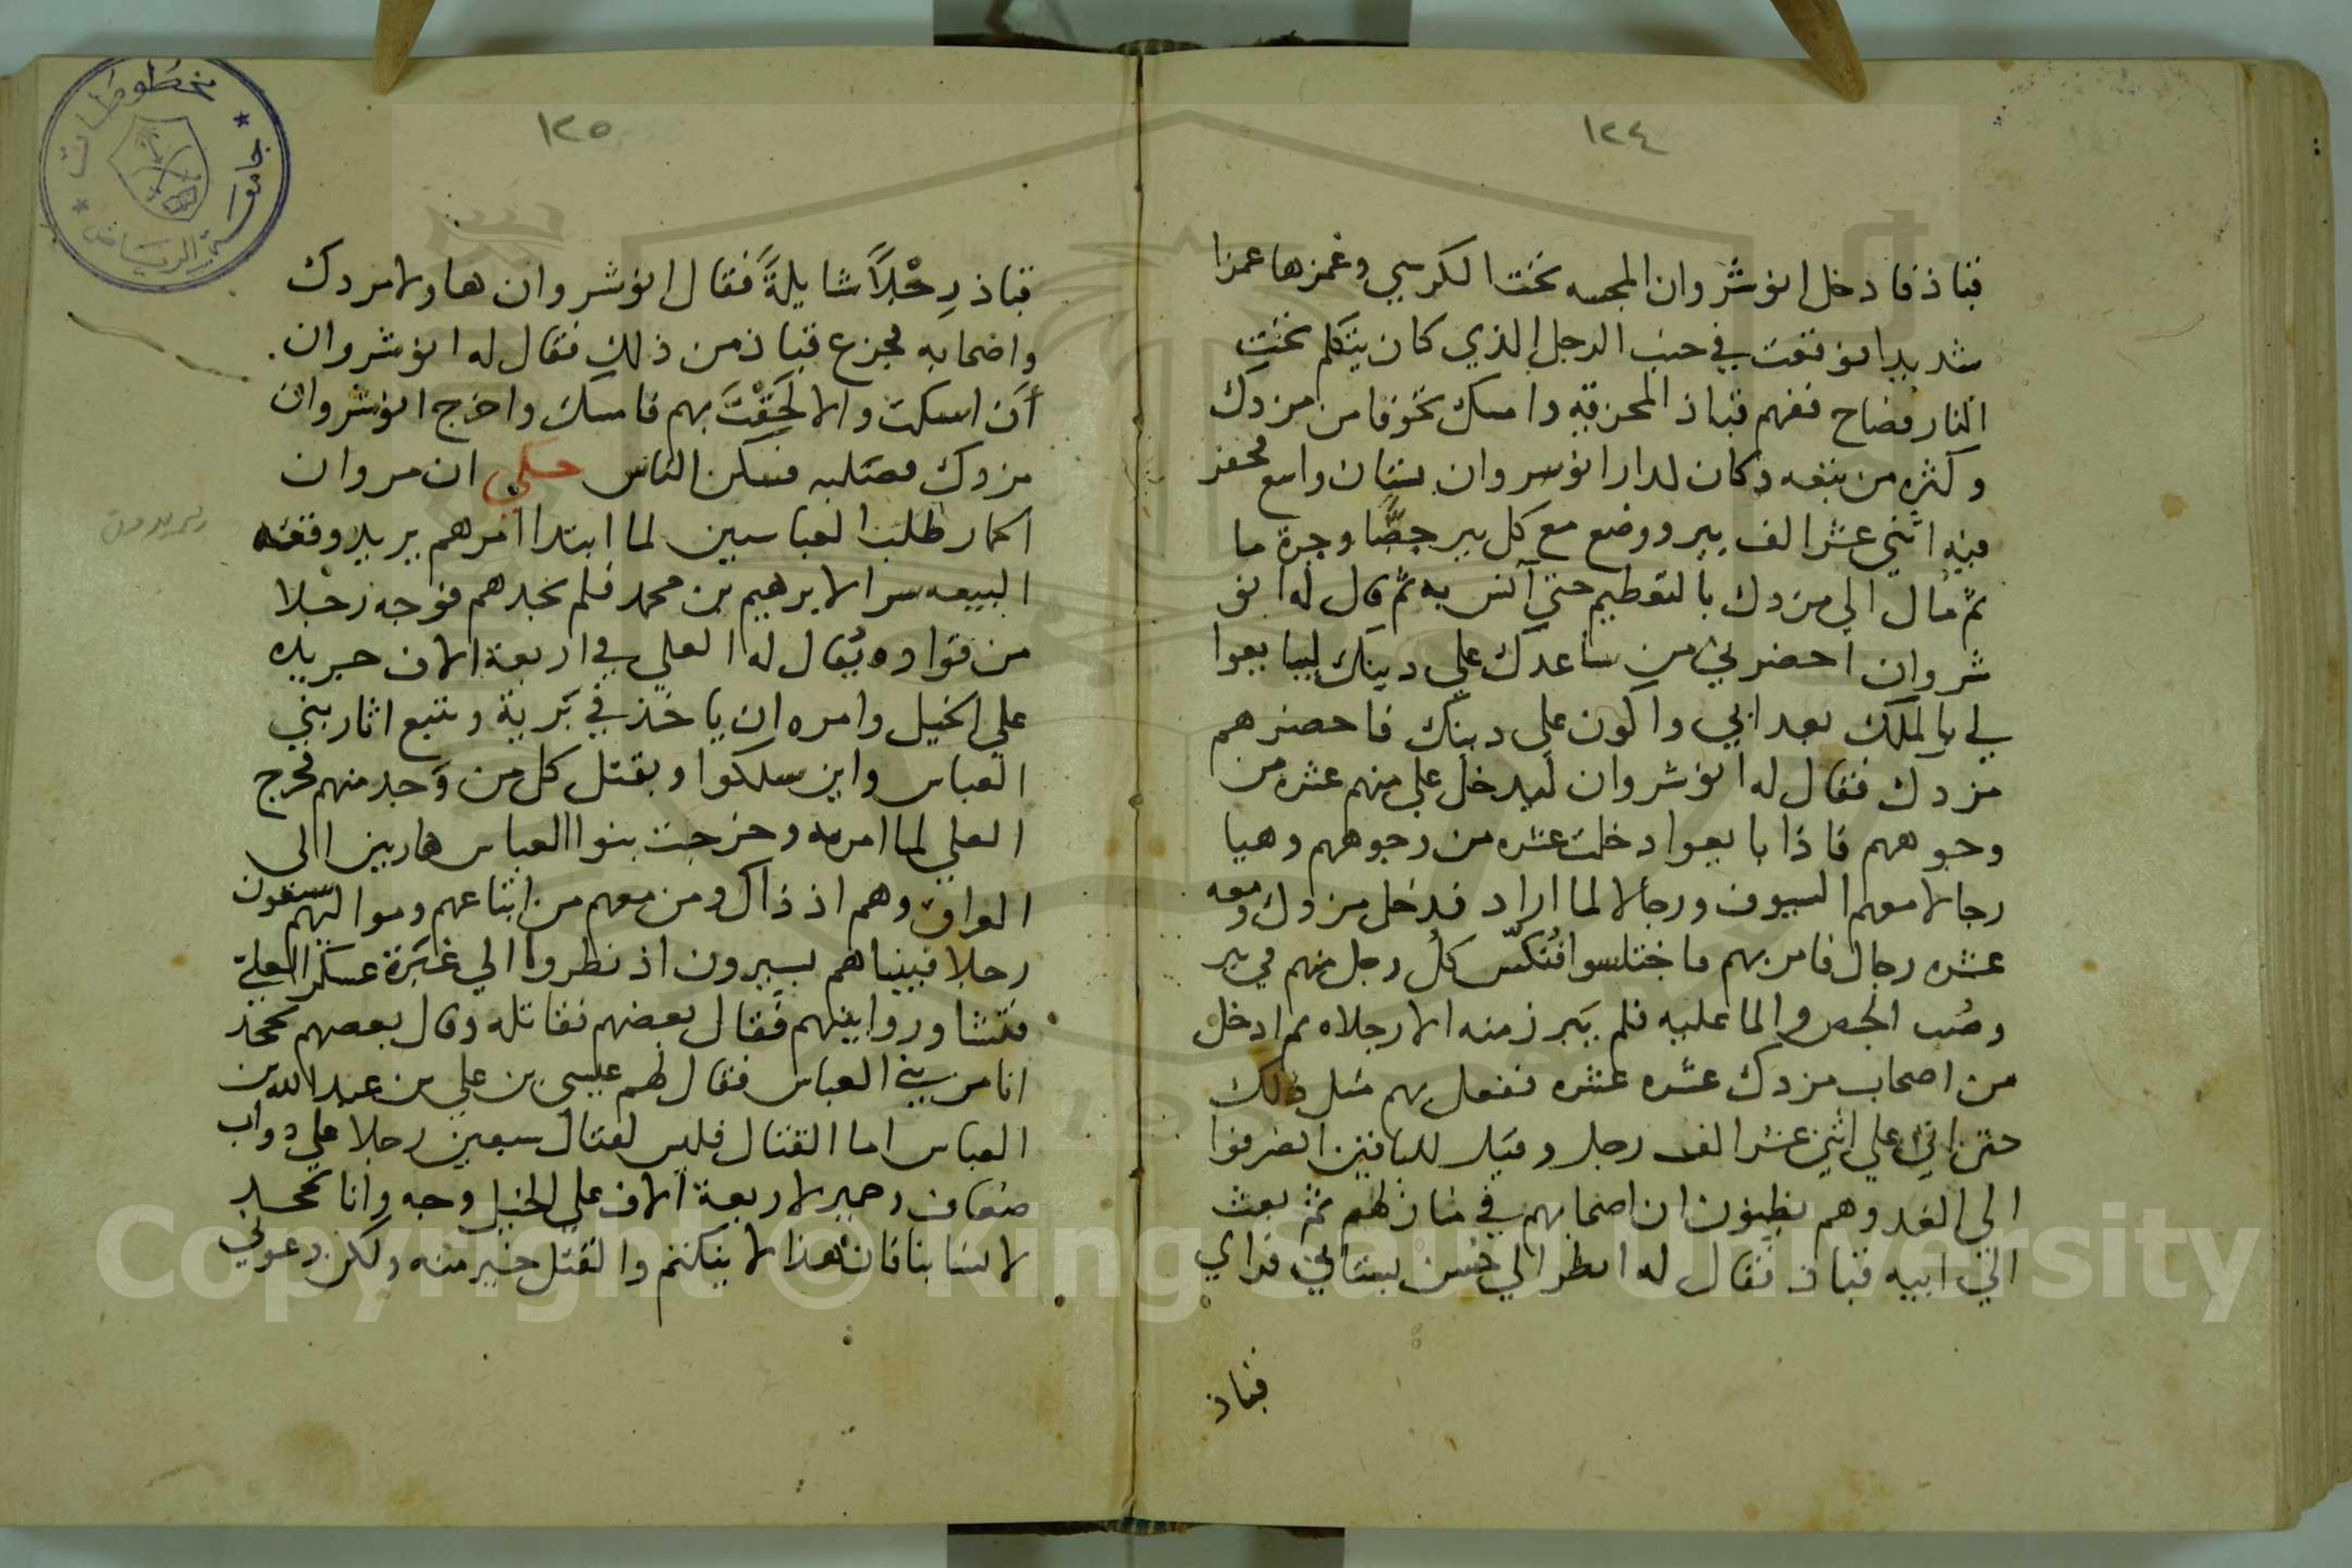 ١٢٤
قباذ فادخل انوشروان المجسه تحت الكرسي وغمزها غمزا
شديدا فوقعت في جنب الرجل الذي كان يتكلم تحت
النار فصاح ففهم قباذ المخرقه وامسك تخوفا من مزدك
وكثره من يتبعه وكان لدار انوسروان بستان واسع فحفر
فيه اثني عشر الف بير ووضع مع كل بير جصًّا وجرة ما
ثم مال الي مزدك بالتعظيم حتي آنس به ثم قال له انو
شروان احضر لي من ساعدك علي دينك ليبايعوا
لي بالملك بعد ابي واكون علي دينك فاحضرهم
مزدك فقال له انوشروان ليدخل علي منهم عشره من
وجوههم فاذا بايعوا دخلت عشره من وجوههم وهيا
رجالا معهم السيوف ورجالا لما اراد فدخل مزدك ومعه
عشره رجال فامر بهم فاختلسوا فنُكّس كل رجل منهم في بير
وصُب الجص والما عليه فلم يبرز منه الا رجلاه ثم ادخل
من اصحاب مزدك عشره عشره ففعل بهم مثل ذلك
حتي اتي علي اثني عشر الف رجل وقيل للباقين انصرفوا
الي الغد وهم يظنون ان اصحابهم في منازلهم ثم بعث
الي ابيه قباذ فقال له انظر الي حُسن بستاني فراي
قباذ
١٢٥
قباذ رِجْلاً شايلةً فقال انوشروان هاولا مزدك
واضحابه فجزع قباذ من ذلك فقال له انوشروان.
أن اسكت والا لَحَقْتَ بهم فامسك واخرج انوشروان
مزدك فصلبه فسكن الناس حكي ان مروان
الحمار طلب العباسيين لما ابتدا امرهم يريد وقفته
البيعه سرا لابرهيم بن محمد فلم يجدهم فوجه رَجُلا
من قواده يُقال له العلي في اربعة الاف جريده
علي الخيل وامره ان ياخذ في بَرية ويتبع اثار بني
العباس واين سلكوا ويقتل كل من وَجد منهم فخرج
العلي لما امر به وخرجت بنوا العباس هاربين الي
العراق وهم اذ ذاك ومن معهم من اتباعهم ومواليهم سبعون
رجلا فبينا هم يسيرون اذ نظروا الي غَبَرة عسكر العليّ
فتشاوروا بينهم فقال بعضهم نقاتله وقال بعضهم نجحد
انا من بني العباس فقال لهم عيسي بن علي بن عبد الله بن
العباس اما القتال فليس لقتال سبعين رجلا علي دواب
ضعاف وحمير لاربعة الاف علي الخيل وجه وانا نجحد
لانسابنا فان هذا لا ينكتم والقتل خير منه ولكن دعوني
مخطوطات
جامعة الرياض
Copyright © King Saud University